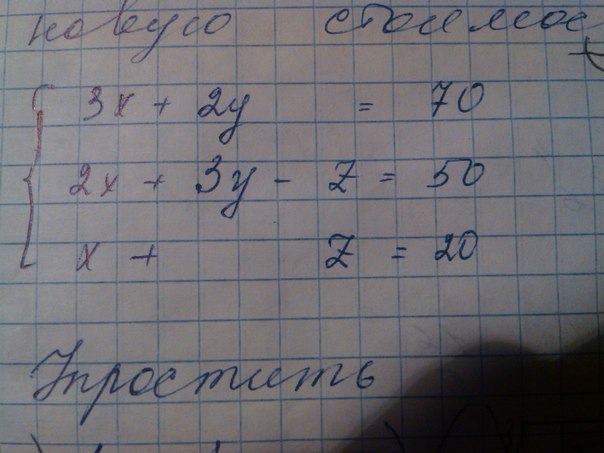 новую стоимос
3x + 2y = 70
2x + 3y - z = 50
x + z = 20
Упростить